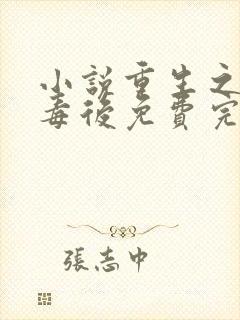 小説重生之
毒後免費完
張志中